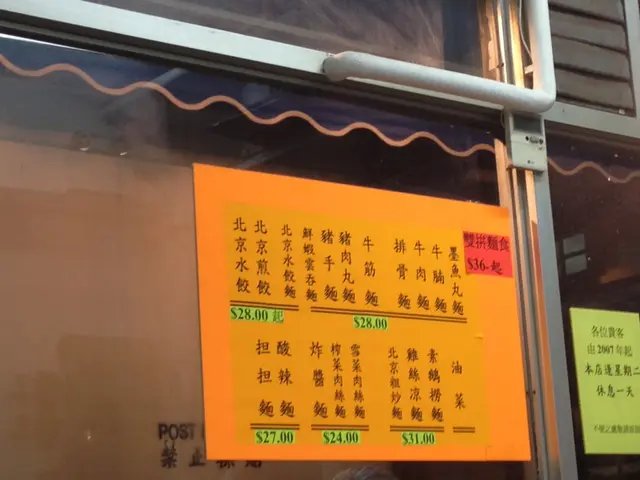 北京水餃
北京煎餃
北京水餃麵
鮮蝦雲吞麵
豬手麵
豬肉丸麵
牛筋麵
排骨麵
牛肉麵
牛腩麵
墨魚丸麵
雙拼麵食
$36-起
$28.00 起
$28.00
担担麵
酸辣麵
炸醬麵
榨菜肉絲麵
雪菜肉絲麵
北京粗炒麵
雞絲凉麵
素鵝撈麵
油菜
$27.00
$24.00
$31.00
POST
禁止
各位貴客
由2007年起
本店逢星期二
休息一天
不便之處敬請原諒